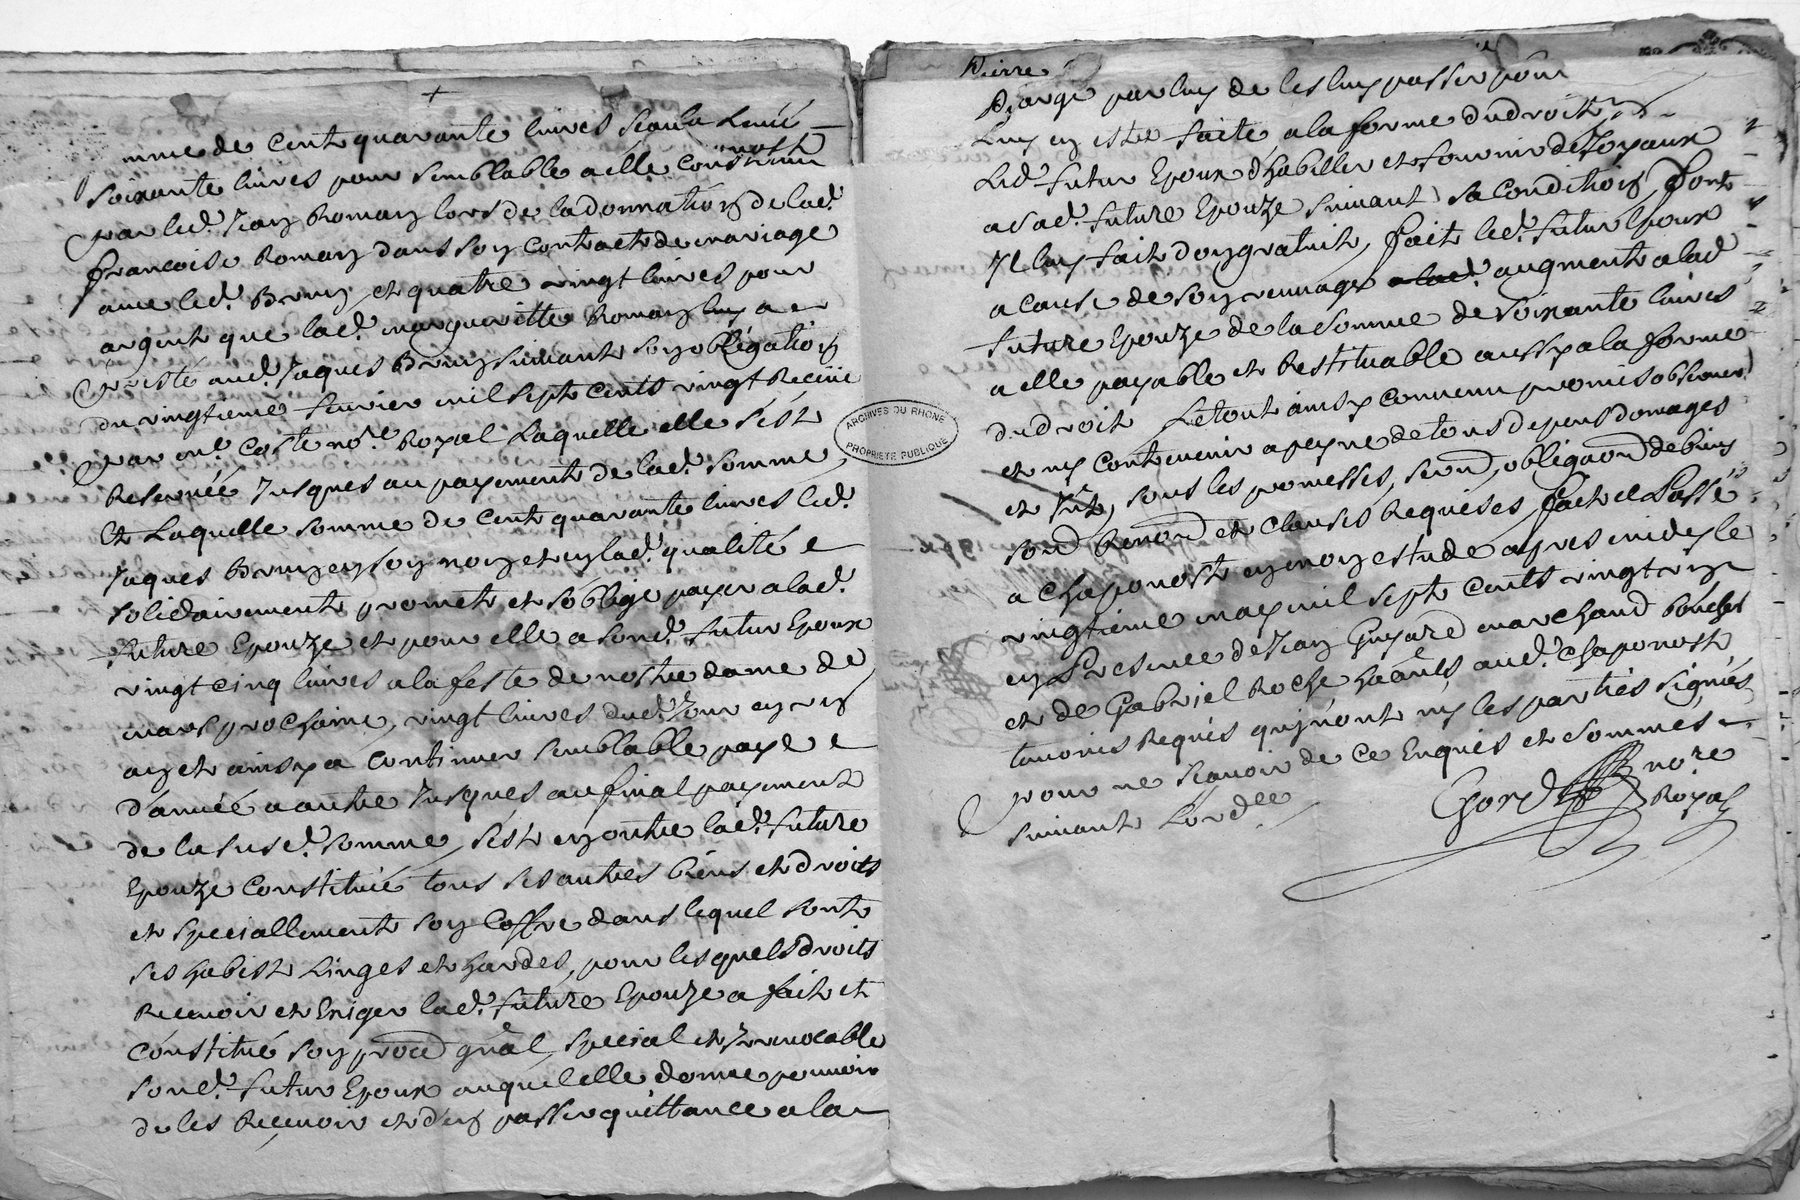 mme de Cent quarante livres scauoir
soixante livres pour semblable a elle constituée
par led. Jean Romany lors de la donnation de lad.
francoise Romany dans son contract de mariage
auec led. Bruny et quatre vingt livres pour
argent que lad. margueritte Romany luy a
presté aud. Jaques Bruny suivant son obligation
du vingtieme feurier mil sept cents vingt Receüe
par me Coste nore Royal Laquelle elle sést
Reseruée Jusques au payement de lad. somme
Et Laquelle somme de Cent quarante livres led.
Jaques Bruny en son nom et en lad. qualité
solidairement promet et s'oblige payer a lad.
future Epouze et pour elle a sond. futur Epoux
vingt cinq livres a la feste de nostre dame de
mars prochaine, vingt livres dud. Jour en un
an et ainsy a Continuer semblable paye
d'année a autre Jusques au final payement
de la susd. somme, s'est en outre lad. future
Epouze Constitüé tous ses autres biens et droits
et speciallement son Coffre dans lequel sont
ses habist Linges et hardes, pour lesquels droits
Receuoir et Exiger lad. future Epouze a fait et
Constitué son procur gñal, special et Irreuocable
sond. futur Epoux auquel elle donne pouuoir
de les Receuoir et d'en passer quittance a la
Pierre
Charge par luy de les luy passer pour
Luy en estre faite a la forme du droit
Led. futur Epoux d'habiller et fournir de Joyaux
a sad. future Epouze suivant sa Condition dont
Il luy fait don gratuit, fait led. futur Epoux
a cause de son veuvage augment a lad
future Epouze de la somme de soixante livres
a elle payable et Restituable aussy a la forme
du droit Le tout ainsy convenu promis obseruer
et ny Contreuenir a peyne de tous depens domages
et Jnts, sous les promesses, serm, obligaon de biens
soum Renon et Clauses Requises fait et Passé
a Chaponost en mon estude apres midy le
vingtieme may mil sept Cents vingt
en Presence de Jean Guyard marchand boucher
et de Gabriel Roche aud. Chaponost
temoins Requis qui n'ont ny les parties signés
pour ne scauoir de ce Enquis et sommés
suivant L'ordce
nore
Royal
ARCHIVES DU RHONE
PROPRIETE PUBLIQUE